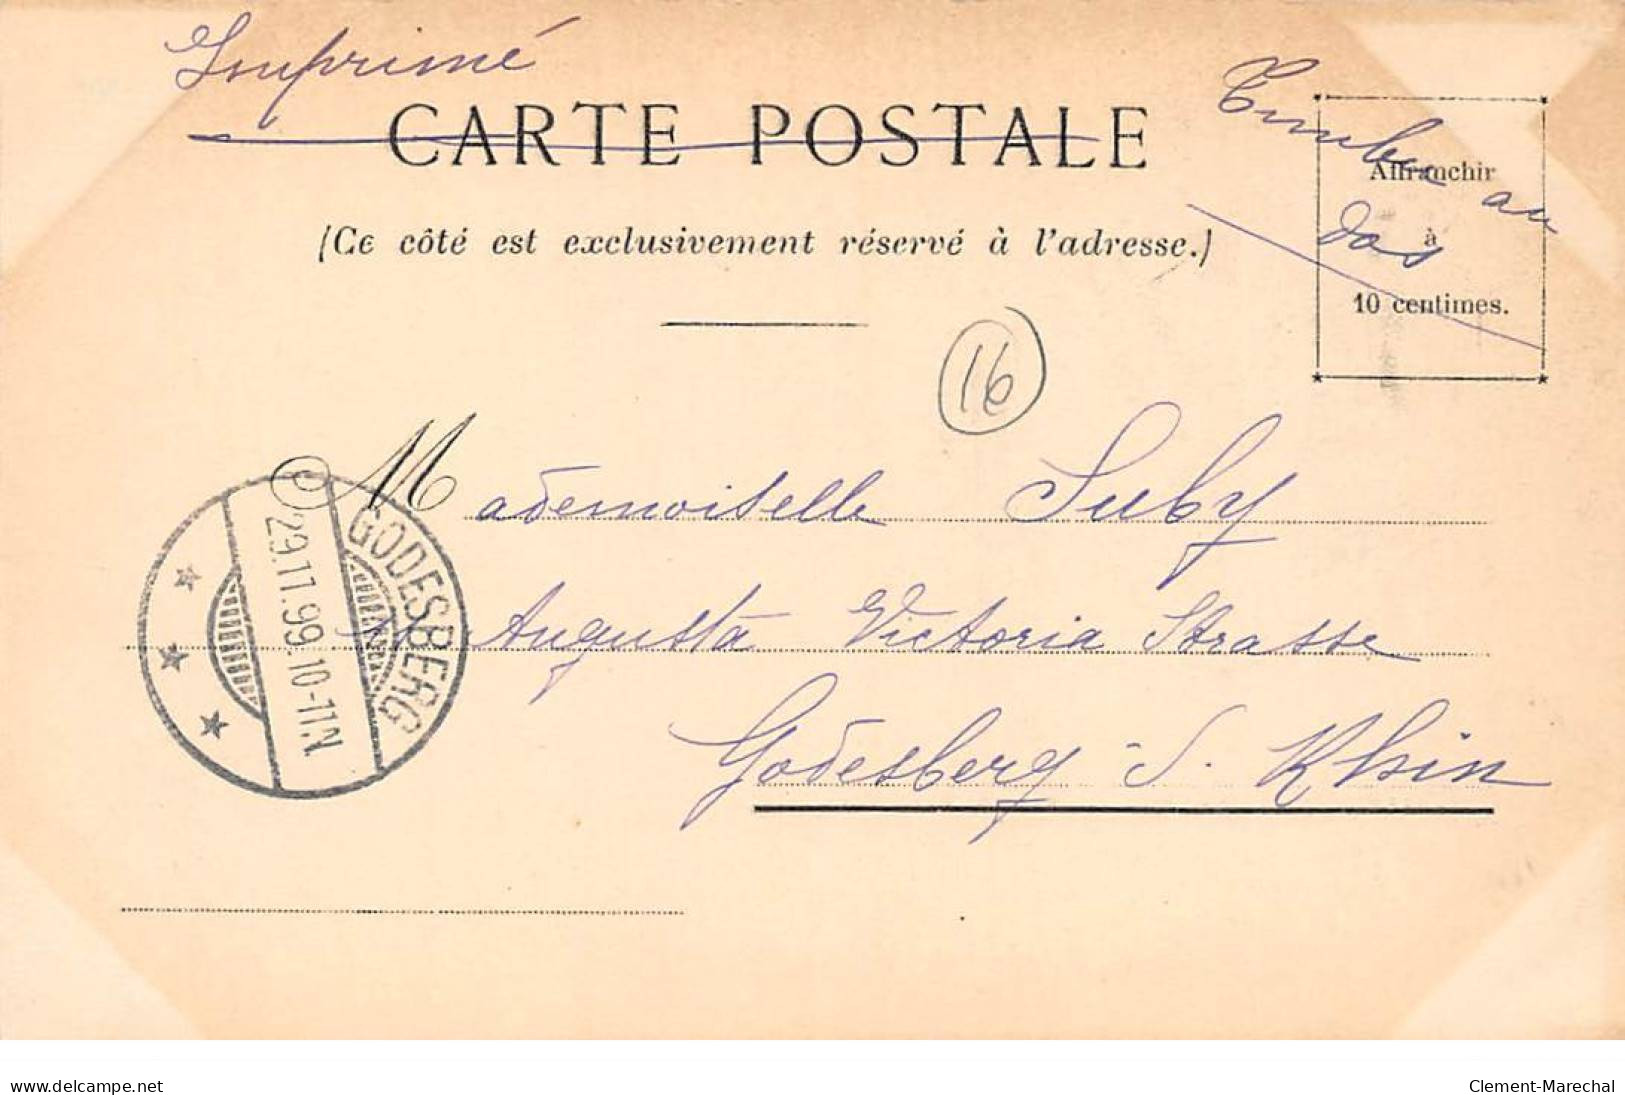 Imprimé
CARTE POSTALE
(Ce côté est exclusivement réservé à l'adresse.)
Timbre au
dos
Affranchir
à
10 centimes.
16
Mademoiselle Suby
Augusta Victoria Strasse
Godesberg s. Rhin
GODESBERG
29.11.99.10-11.N.
www.delcampe.net
Clement-Marechal